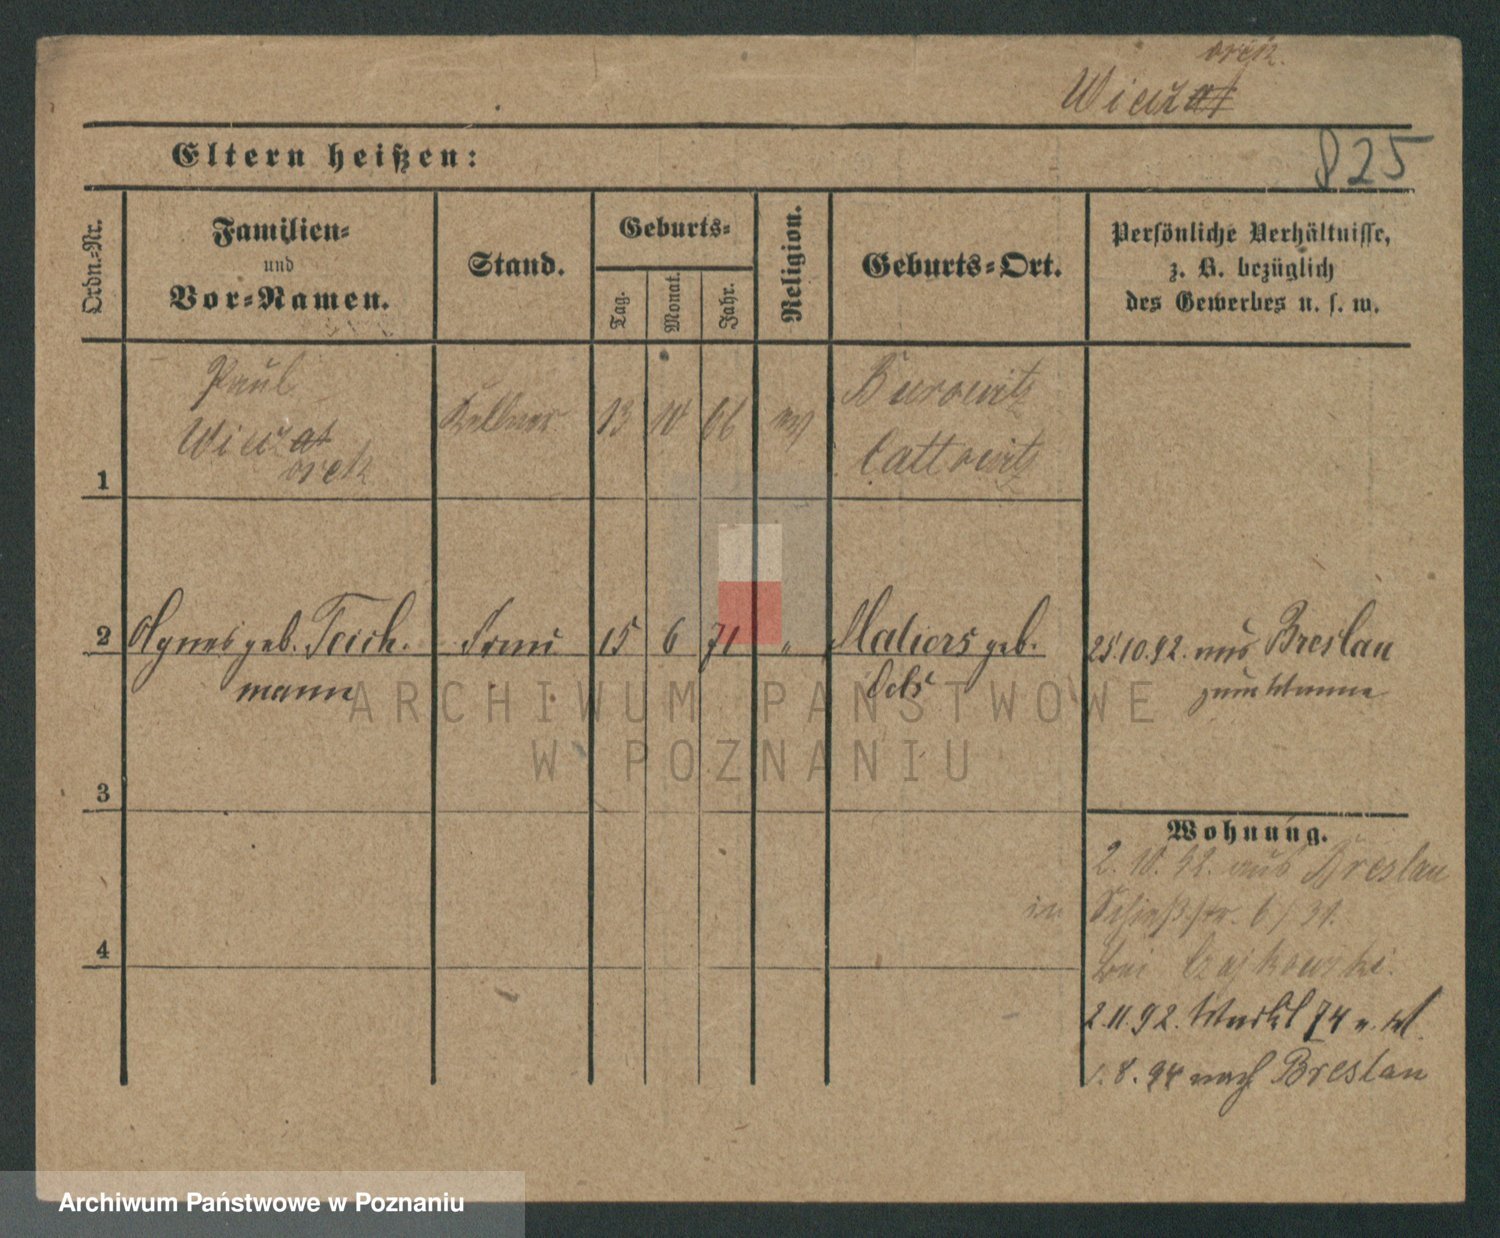 orek.
Wieczat
Eltern heißen:
825
Ordn.-Nr.
Familien-
und
Vor-Namen.
Stand.
Geburts-
Tag.
Monat.
Jahr.
Religion.
Geburts-Ort.
Persönliche Verhältnisse,
z. B. bezüglich
des Gewerbes u. s. w.
1
Paul
Wieczat
orek
Kellner
13
10
66
ev
Burowitz
Cattowitz
2
Agnes geb. Teich-
mann
Frau
15
6
71
"
Maliers geb.
Oels
25.10.92. aus Breslau
zum Manne
3
Wohnung.
2.10.92. aus Breslau
in Schießstr. 6/31.
bei Czajkowski.
4
2.11.92. Markt 74
1.8.94 nach Breslau
ARCHIWUM PAŃSTWOWE
W POZNANIU
Archiwum Państwowe w Poznaniu